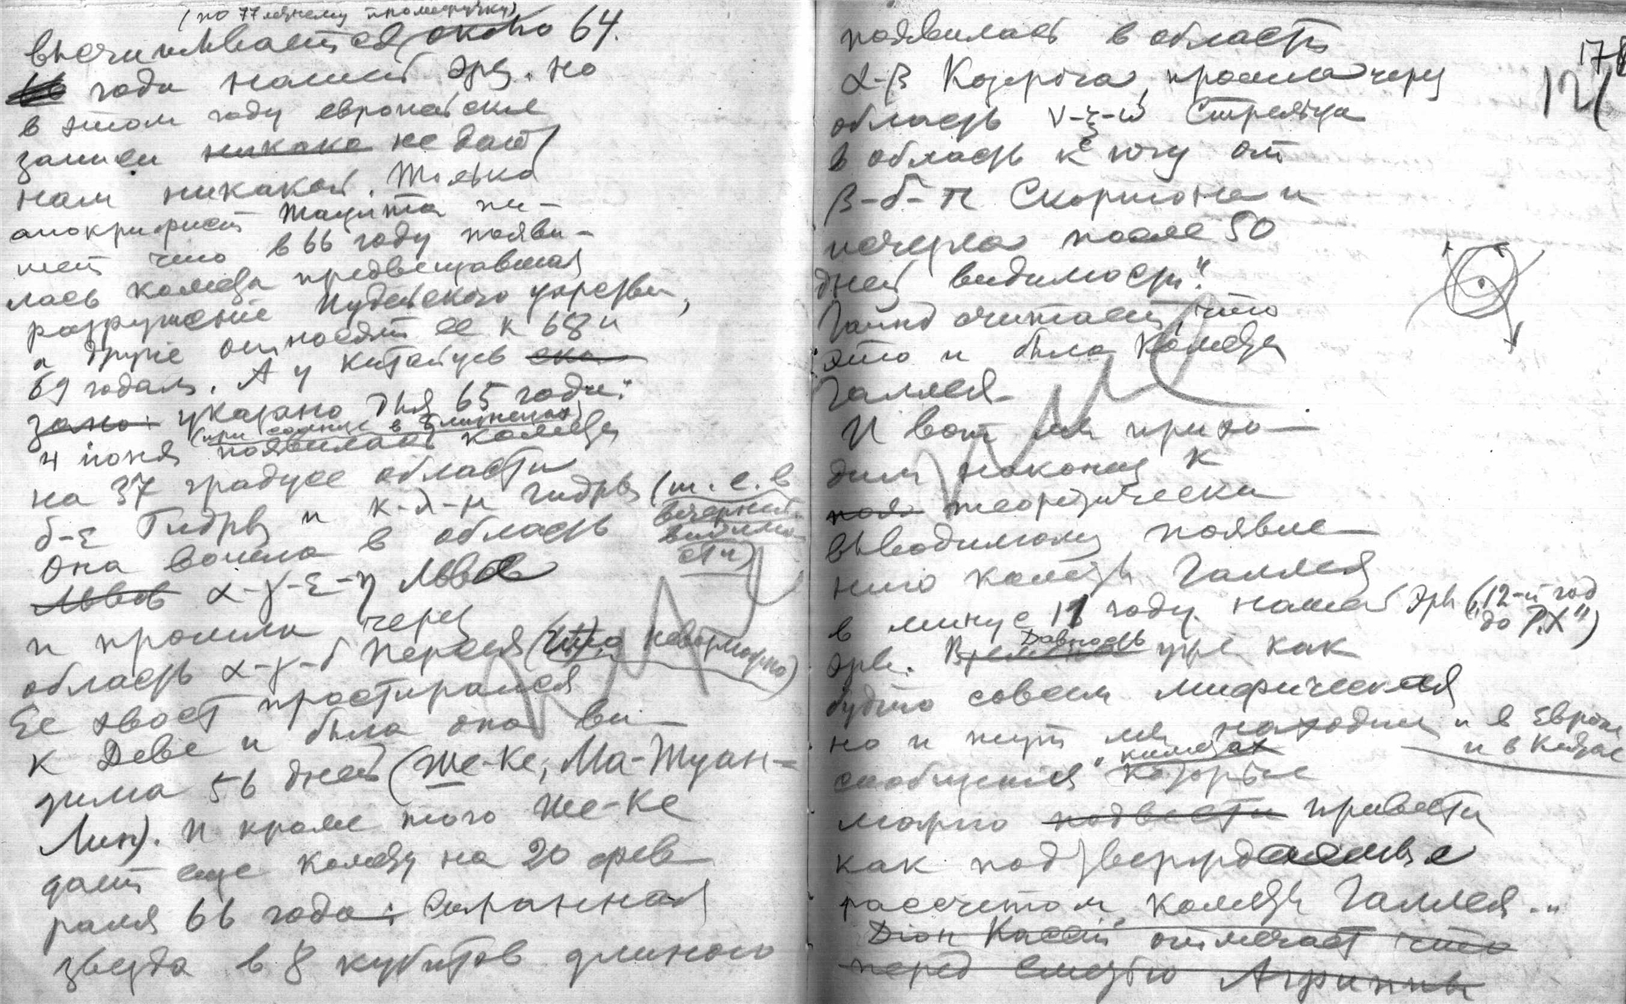 (по 77летнему промежутку)
высчитывается около 64.
года нашей эры. но
в этом году европейские
записи никако не дают
нам никакой. Только
апокрифист Тацита пи-
шет что в 66 году появи-
лась комета предвещавшая
разрушение Иудейского царства,
а другие относят ее к 68 и
69 годам. А у китайцев ска
зано: указано для 65 года:"
(при солнце в Близнецах)
4 июня появилась комета
на 37 градусе области
δ-ε Гидры и κ-λ-μ гидры (т. е. в
вечерней
видимо
сти)
Она вошла в область
Львов α-γ-ε-η Льва
и прошла через
область α-γ-δ Персея (что невозможно)
Ее хвост простирался
к Деве и была она ви-
дима 56 дней (Ше-Ке, Ма-Туан-
Лин). И кроме того Ше-Ке
дает еще комету на 20 фев-
раля 66 года: Странная
звезда в 8 кубитов длиною
появилась в область
α-β Козерога, прошла через
область ν-ξ-ω Стрельца
в область к югу от
β-δ-π Скорпиона и
исчезла после 50
дней видимости."
Гайнд считает, что
это и была Комета
Галлея.
И вот мы прихо-
дим наконец к
поя теоретически
выводимому появле-
нию кометы Галлея
в минус 11 году нашей эры ("12-й год
до Р.Х")
эры. Времен Давность уже как
будто совсем мифическая
но и тут мы находим и в Европе
и в Китае
сообщения о кометах которые
можно подвести привести
как подтверждаемые
рассчетом кометы Галлея...
Дион Кассий отмечает что
перед смертью Агриппы